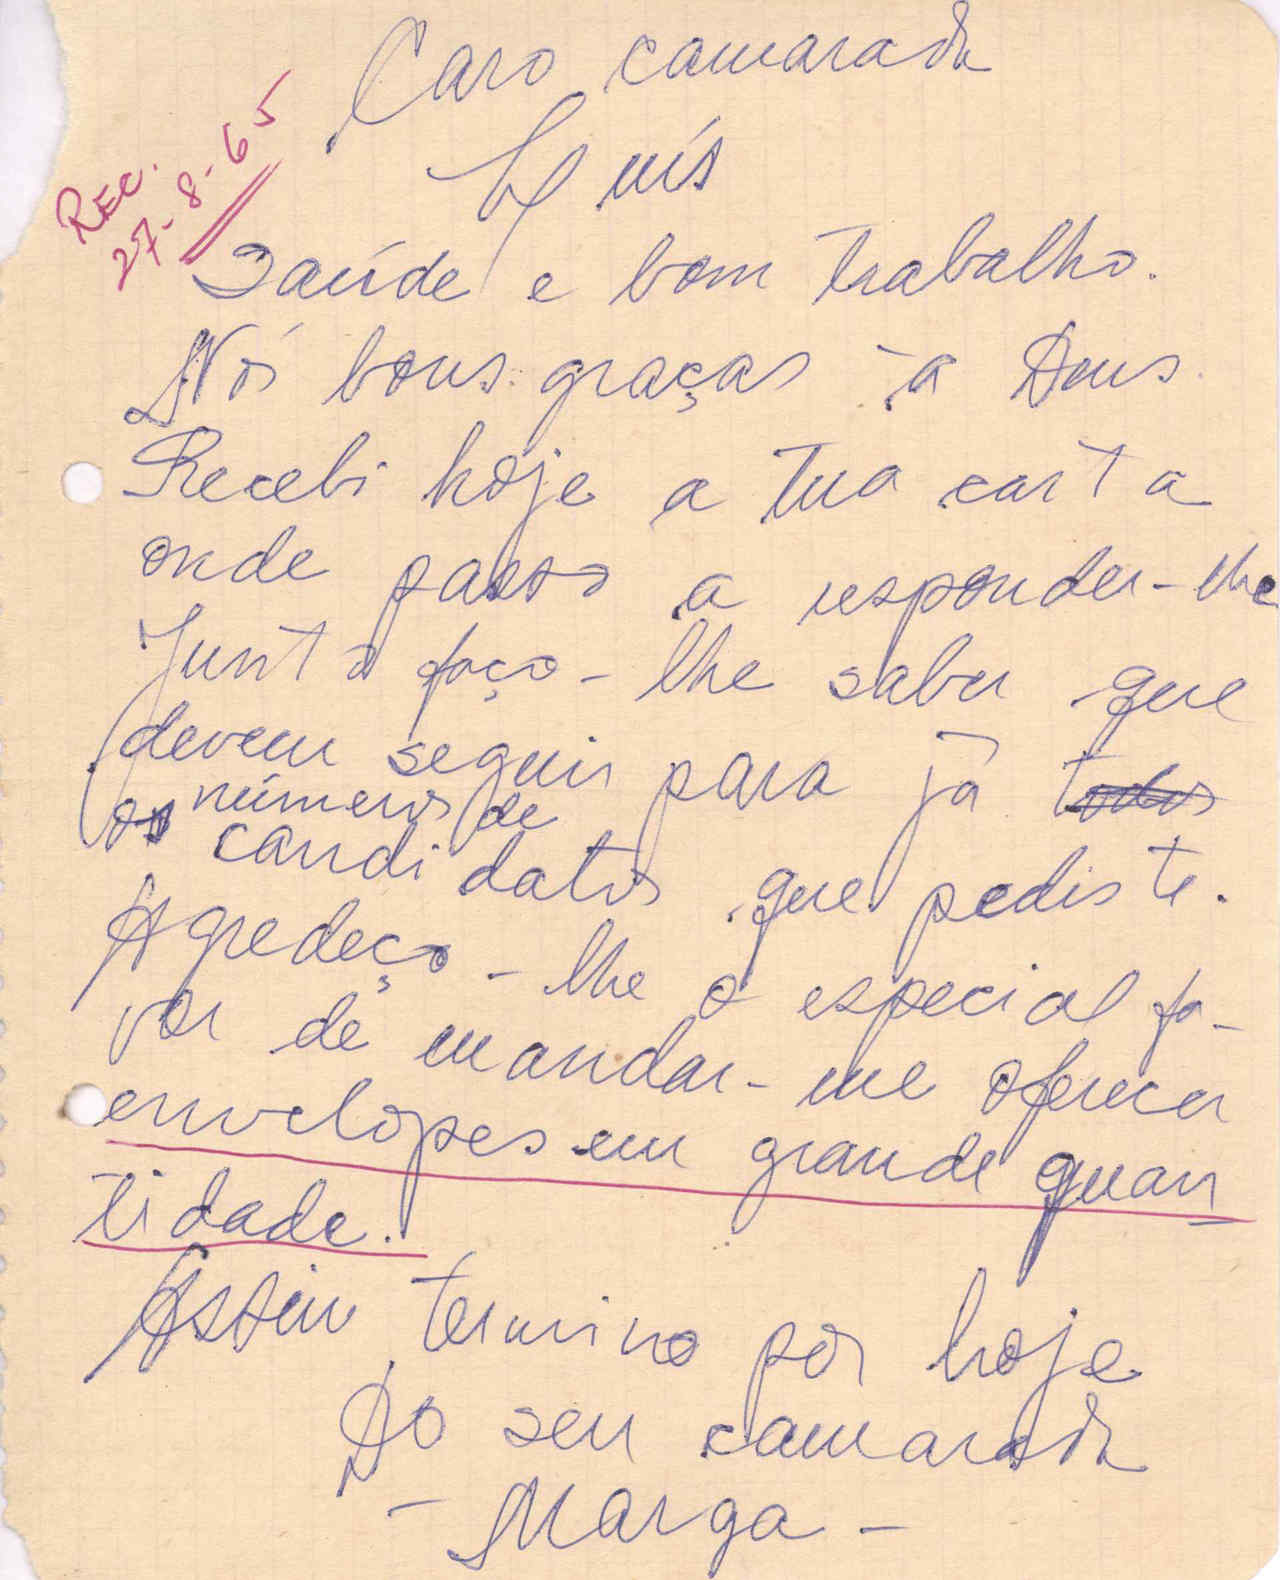 Caro camarada
Luís
REC.
27-8-65
Saúde e bom trabalho.
Nós bons graças à Deus.
Recebi hoje a tua carta
onde passo a responder-lhe
Junto faço-lhe saber que
devem seguir para já todos
os números de
candidatos que pediste.
Agredeço-lhe o especial fa-
vor de mandar-me oferecer
envelopes em grande quan
tidade.
Assim termino por hoje
Do seu camarada
- Marga -